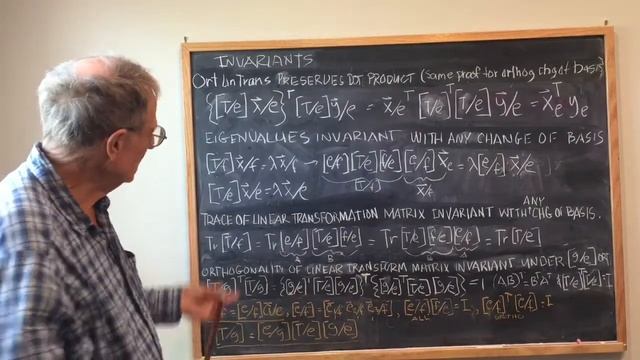 INVARIANTS
Ort Lin Trans PRESERVES DOT PRODUCT (same proof for orthog chg of basis)
{[T/e] x⃗/e}ᵀ [T/e] y⃗/e = x⃗/eᵀ [T/e]ᵀ [T/e] y⃗/e = x⃗ₑᵀ yₑ
EIGENVALUES INVARIANT WITH ANY CHANGE OF BASIS
[T/f] x⃗/f = λ x⃗/f → [e/f] [T/e] [f/e] [e/f] x⃗ₑ = λ [e/f] x⃗/e
[T/f] x⃗/f
[T/e] x⃗/e = λ x⃗/e
TRACE OF LINEAR TRANSFORMATION MATRIX INVARIANT WITH ANY CHG OF BASIS.
Tr [T/f] = Tr [e/f] [T/e] [f/e] = Tr [T/e] [f/e] [e/f] = Tr [T/e]
ORTHOGONALITY OF LINEAR TRANSFORM MATRIX INVARIANT UNDER [g/e] ORT
[T/g]ᵀ [T/g] = {[e/g] [T/e] [g/e]}ᵀ {[e/g] [T/e] [g/e]} = I (AB)ᵀ = BᵀAᵀ [T/e]ᵀ[T/e] = I
ALL ORTHO
[T/g] = [e/g] [T/e] [g/e]